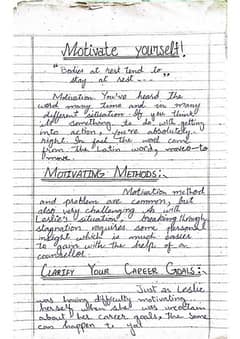 Motivate yourself!
"Bodies at rest tend to
stay at rest...."
Motivation You've heard the
word many time and in many
different situation. If you think
it something to do with getting
into action, you're absolutely
right. In fact the word came
from the Latin word, moveo-to
move.
MOTIVATING METHODS:-
Motivation method
and problem are common, but
also very challenging. As with
Leslie's situation, breaking through
stagnation requires some personal
insight which is much easier
to gain with the help of an
counsellor.
CLARIFY YOUR CAREER GOALS:-
Just as Leslie
was having difficulty motivating
herself when she was uncertain
about her career goals the same
can happen to you